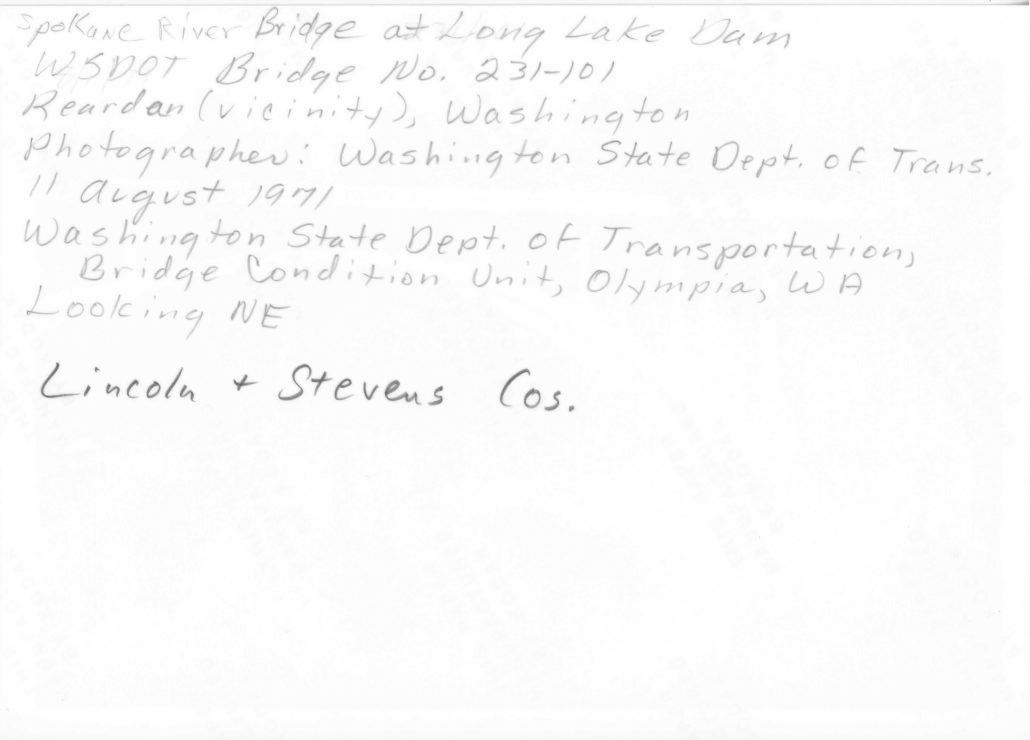 Spokane River Bridge at Long Lake Dam
WSDOT Bridge No. 231-101
Reardan (vicinity), Washington
Photographer: Washington State Dept. of Trans.
11 August 1971
Washington State Dept. of Transportation,
Bridge Condition Unit, Olympia, WA
Looking NE
Lincoln + Stevens Cos.